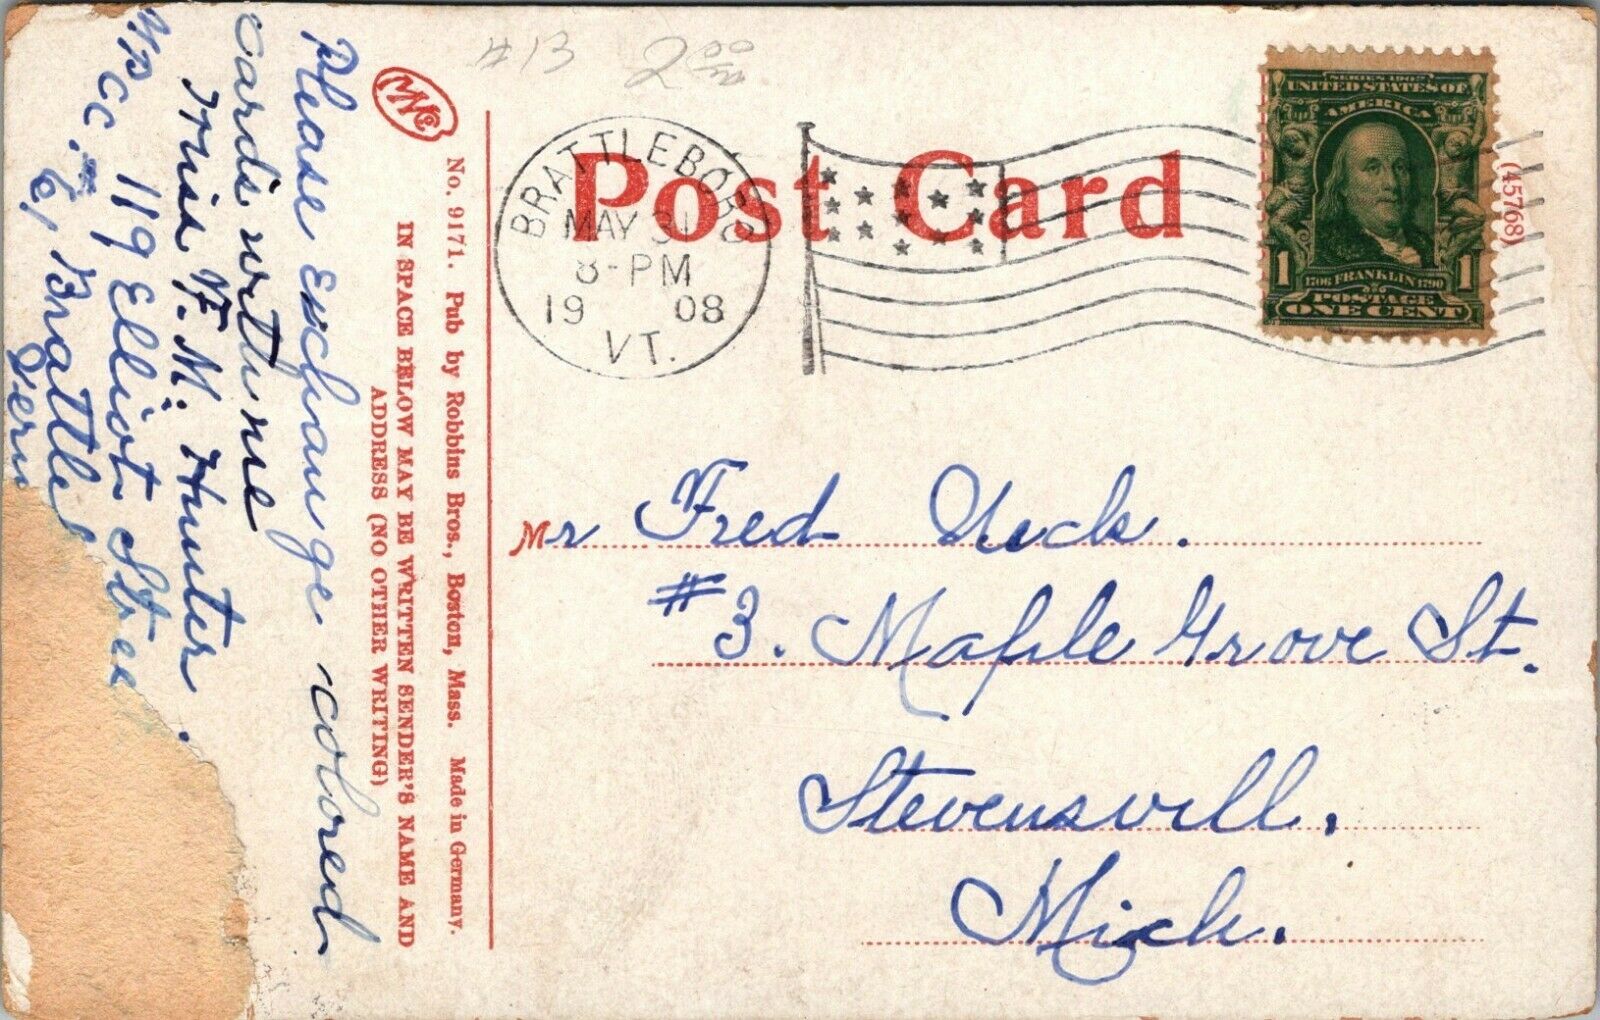 #13 2.00
Post Card
BRATTLEBORO
MAY 31
8-PM
19 08
VT.
SERIES 1902
UNITED STATES OF
AMERICA
1 1706 FRANKLIN 1790 1
POSTAGE
ONE CENT
(45768)
Mr Fred
#3. Maple Grove St.
Stevensvill.
Mich.
No. 9171. Pub by Robbins Bros., Boston, Mass. Made in Germany.
IN SPACE BELOW MAY BE WRITTEN SENDER'S NAME AND
ADDRESS (NO OTHER WRITING)
Please Exchange colored
cards with me
Miss F. M. Hunter.
119 Elliot Stree
Brattleb
Verm